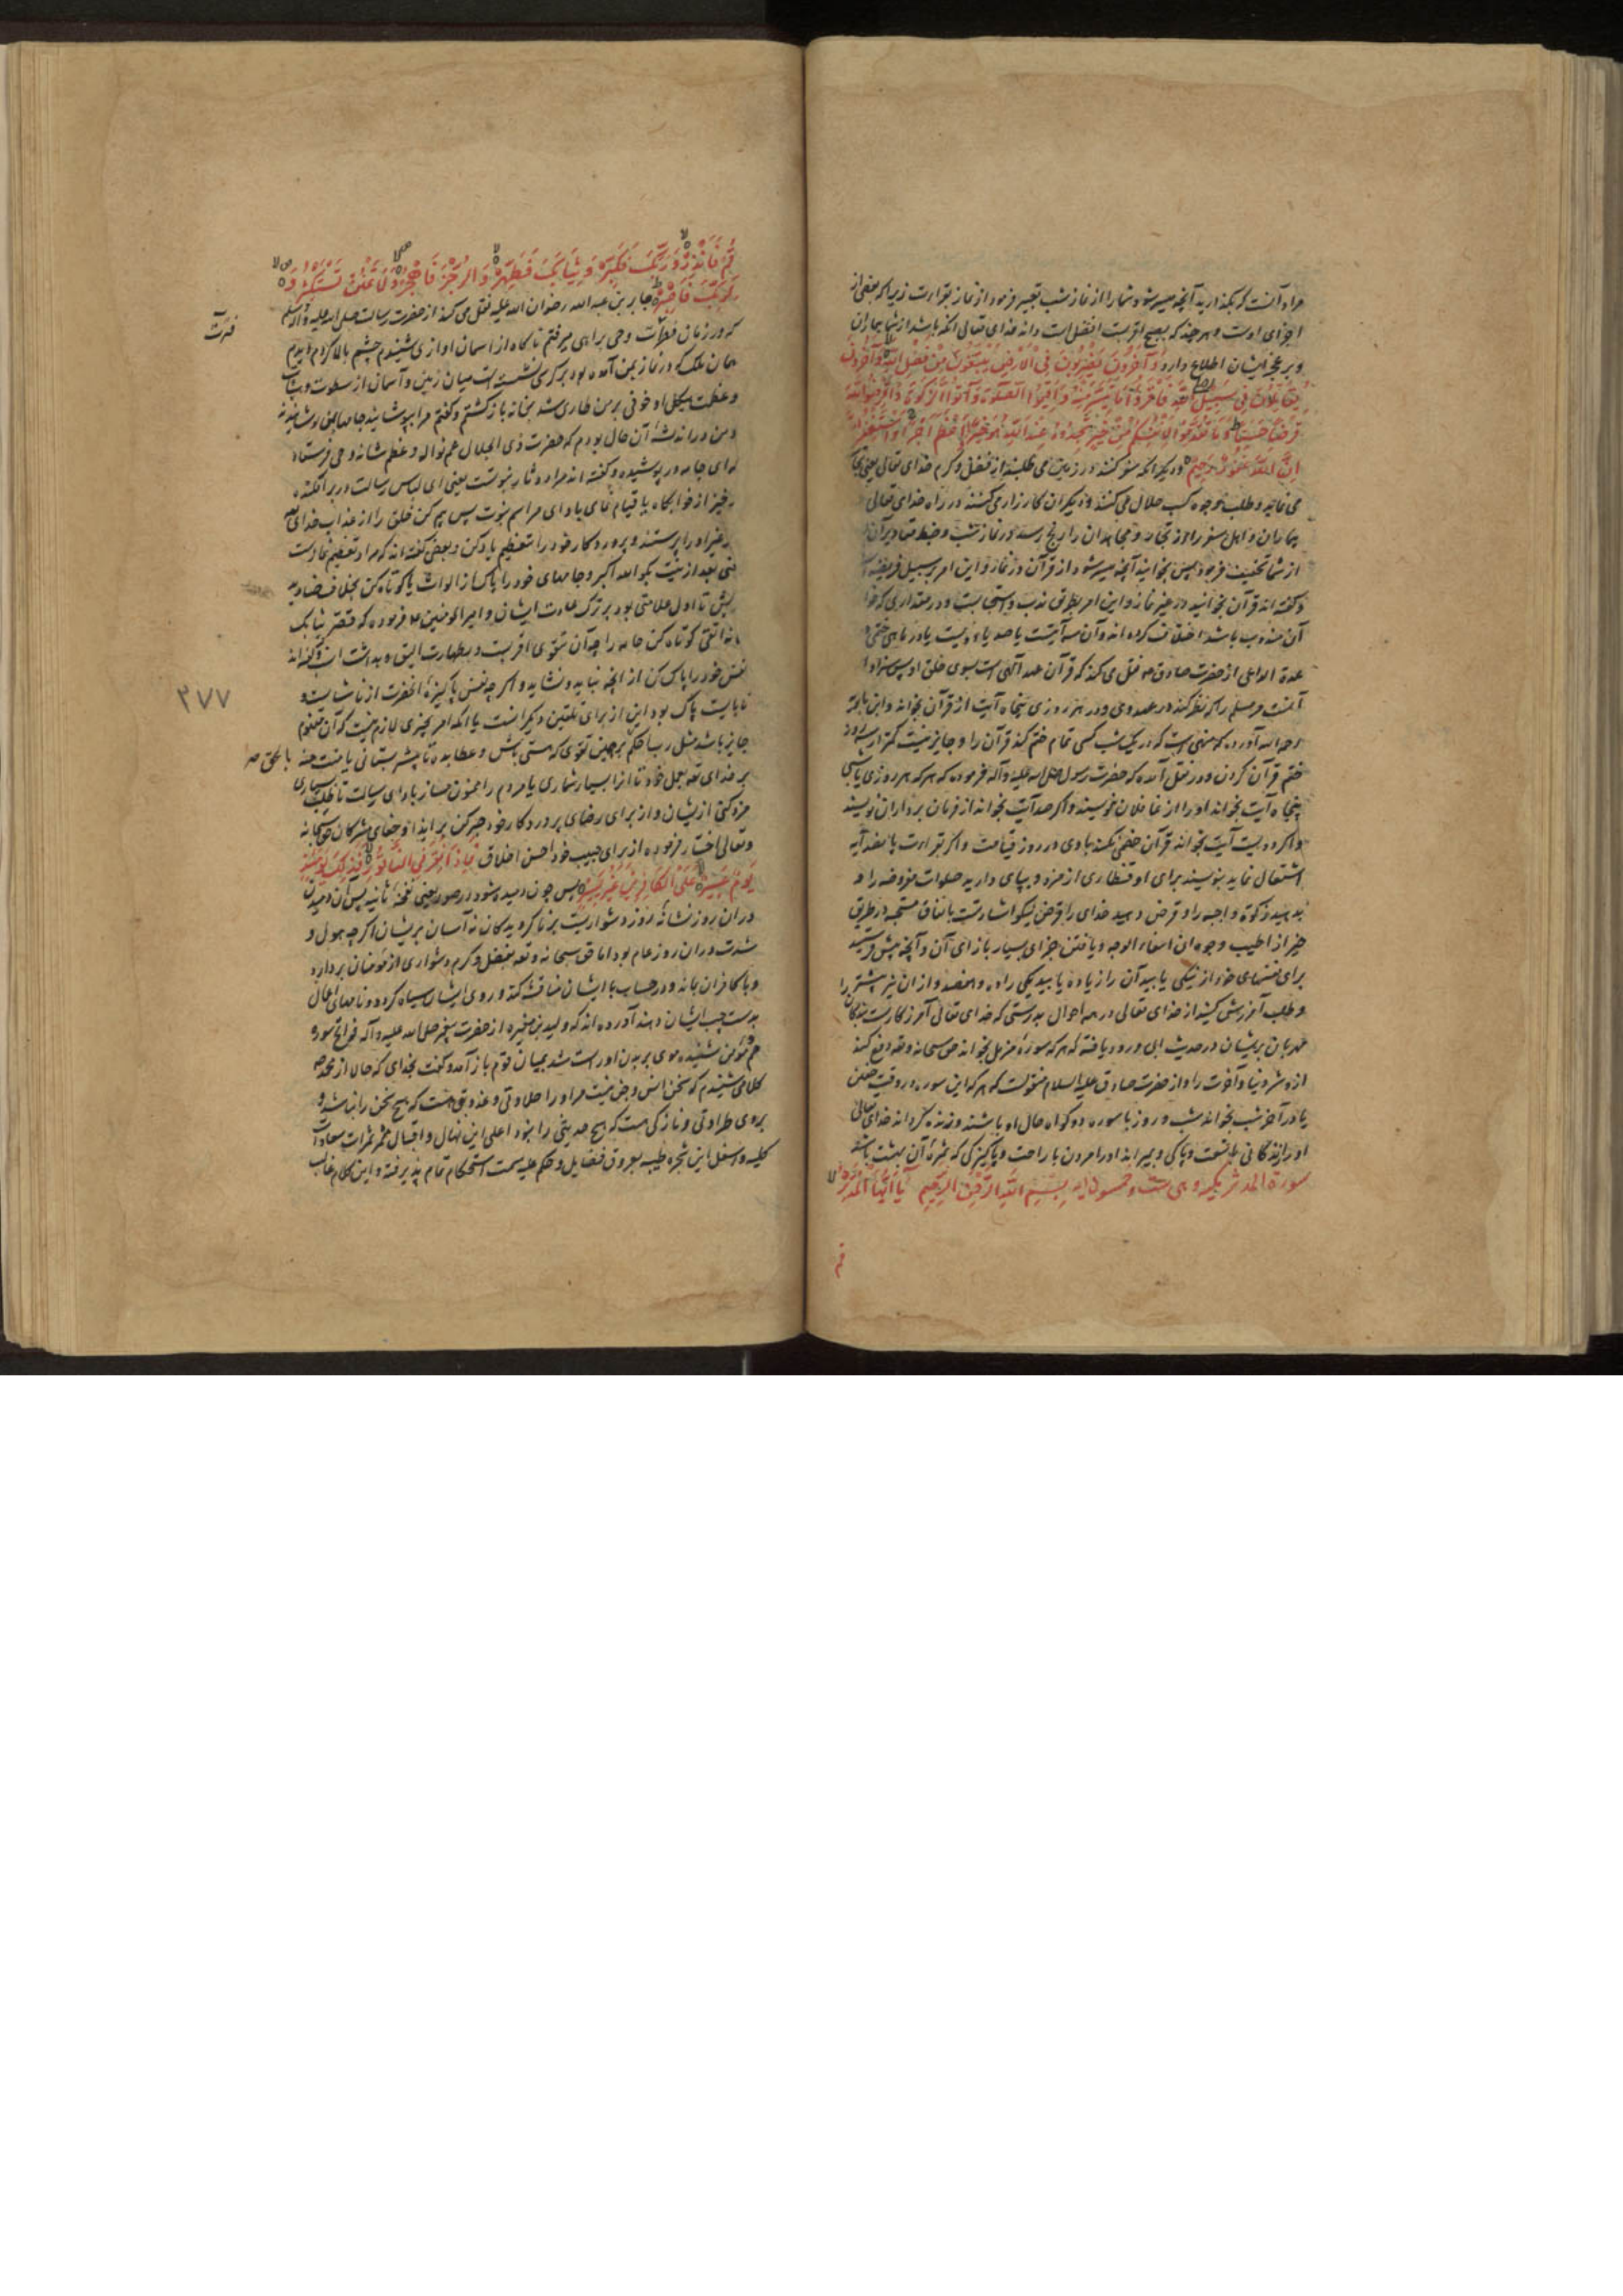 مراد آنست که بگذارید آنچه میسر شود شما را از نماز شب تعبیر فرمود از نماز بقراءت زیرا که بعضی از
اجزای اوست و هر چند که بصبح اقربست افضل است داند خدای تعالی آنکه باشد از شما بیماران
و بر عجز ایشان اطلاع دارد وَآخَرُونَ يَضْرِبُونَ فِي الْأَرْضِ يَبْتَغُونَ مِنْ فَضْلِ اللَّهِ وَآخَرُونَ
يُقَاتِلُونَ فِي سَبِيلِ اللَّهِ فَاقْرَؤُا مَا تَيَسَّرَ مِنْهُ وَأَقِيمُوا الصَّلَوٰةَ وَآتُوا الزَّكَوٰةَ وَأَقْرِضُوا اللَّهَ
قَرْضًا حَسَنًا وَمَا تُقَدِّمُوا لِأَنْفُسِكُمْ مِنْ خَيْرٍ تَجِدُوهُ عِنْدَ اللَّهِ هُوَ خَيْرًا وَأَعْظَمَ أَجْرًا وَاسْتَغْفِرُوا اللَّهَ
إِنَّ اللَّهَ غَفُورٌ رَحِيمٌ و دیگر آنکه سفر کنند در زمین می طلبند از فضل و کرم خدای تعالی یعنی
می نمایند و طلب وجوه کسب حلال می کنند و دیگران کارزار می کنند در راه خدای تعالی
بیماران و اهل سفر را از تجار و مجاهدان را رنج رسد در نماز شب و ضبط مقادیر آن
از شما تخفیف فرمود پس بخوانید آنچه میسر شود از قرآن در نماز و این امر بر سبیل فریضه
و گفته اند قرآن بخوانید در غیر نماز و این امر بطریق ندب و استحبابست و در مقداری که
آن مندوب باشد اختلاف کرده اند و آن سه آیتست یا صد یا دویست یا در ماهی ختمی
عدة الداعی از حضرت صادق نقل می کند که قرآن عهد آلهی است بسوی خلق او پس سزاوار
آنست مر مسلم را که نظر کند در عهد وی و در هر روزی پنجاه آیت از قرآن بخواند و ابن بابویه
رحمه الله آورده که منهی است که در یک شب کسی تمام ختم کند قرآن را و جایز نیست کمتر از سه روز
ختم قرآن کردن و در نقل آمده که حضرت رسول صلی الله علیه و آله فرموده که هر که هر روزی یا شبی
پنجاه آیت بخواند او را از غافلان ننویسند و اگر صد آیت بخواند از فرمان برداران نویسند
و اگر دویست آیت بخواند قرآن خصمی نکند با وی در روز قیامت و اگر بقراءت پانصد آیه
اشتغال نماید بنویسند برای او قنطاری از مزد و بپای دارید صلوات مفروضه را و
بدهید زکوة واجبه را و قرض دهید خدای را قرض نیکو اشارتست بانفاق مستحبه در طریق
خیر از اطیب وجوه آن اسفاء الوجه و یافتن جزای بسیار بازای آن و آنچه پیش فرستید
برای نفسهای خود از نیکی یابید آن را زیاده یابید یکی را ده و هفصد و از آن نیز بیشتر را
و طلب آمرزش کنید از خدای تعالی در همه احوال بدرستی که خدای تعالی آمرزگارست بندگان
مهربان بریشان در حدیث ابی ورود یافته که هر که سورۀ مزمل بخواند حق سبحانه و تعه دفع کند
ازو شر دنیا و آخرت را و از حضرت صادق علیه السلام منقولست که هر که این سوره در وقت خفتن
یا در آخر شب بخواند شب و روز با سوره دو گواه حال او باشند و زنده گرداند خدای تعالی
او را زندگانی با نعمت و پاکی و بمیراند او را مردن با راحت و پاکیزگی که ثمرۀ آن بهشت باشد
سورة المدثر مکیه و هی ست و خمسون آیه بِسْمِ اللَّهِ الرَّحْمٰنِ الرَّحِيمِ يَا أَيُّهَا الْمُدَّثِّرُ
قم
قُمْ فَأَنْذِرْ وَرَبَّكَ فَكَبِّرْ وَثِيَابَكَ فَطَهِّرْ وَالرُّجْزَ فَاهْجُرْ وَلَا تَمْنُنْ تَسْتَكْثِرُ وَ
لِرَبِّكَ فَاصْبِرْ جابر بن عبد الله رضوان الله علیه نقل می کند از حضرت رسالت صلی الله علیه و آله و سلم
که در زمان فترات وحی براهی میرفتم ناگاه از آسمان آوازی شنیدم چشم بالا کردم دیدم
فترت
همان ملک که در نماز بمن آمده بود بر کرسی نشسته است میان زمین و آسمان از سطوت و هیبت
و عظمت هیکل او خوفی بر من طاری شد بخانه باز گشتم و گفتم مرا بپوشانید جامها بمن پوشانیدند
و من در اندیشۀ آن حال بودم که حضرت ذی الجلال عم نواله و عظم شانه وحی فرستاد
که ای جامه در پوشیده و گفته اند مراد دثار نبوتست یعنی ای لباس رسالت در بر افکنده
برخیز از خوابگاه یا قیام نمای بادای مراسم نبوت پس بیم کن خلق را از عذاب خدای
که غیر او را پرستند و پروردگار خود را بتعظیم یاد کن و بعضی گفته اند که مراد تعظیم نمازست
یعنی بعد از نیت بگو الله اکبر و جامهای خود را پاک ساز از الواث یا کوتاه کن بخلاف صنادید
قریش تا اول علامتی بود بر ترک عادت ایشان و امیر المومنین فرموده که فقصر ثیابک
فانه اتقی کوتاه کن جامه را چه آن بتقوی اقربست و بطهارت الیق و گفته اند
نفس خود را پاک کن از آنچه نباید و نشاید و اگر چه نفس پاکیزۀ آنحضرت از ناشایست و
نابایست پاک بود این از برای تلقین دیگرانست یا آنکه امر بچیزی لازم نیست که آن معدوم
٢٧٧
جایز باشد مثل رب احکم بر همین تقوی که هستی باش و عطا بده تا بیشتر بستانی یا منت منه با لحق
بر خدای بعمل خود تا آنرا بسیار شماری یا مردم را ممنون مساز بادای رسالت تا طلب بسیاری
مزد کنی ازیشان و از برای رضای پروردگار خود صبر کن بر ایذا و جفای مشرکان حق سبحانه
و تعالی اختیار فرموده از برای حبیب خود احسن اخلاق فَإِذَا نُقِرَ فِي النَّاقُورِ فَذٰلِكَ يَوْمَئِذٍ
يَوْمٌ عَسِيرٌ عَلَى الْكَافِرِينَ غَيْرُ يَسِيرٍ پس چون دمیده شود در صور یعنی نفخۀ ثانیه پس آن دمیدن
در آن روز نشانۀ روز دشواریست بر ناگرویدگان نه آسان بریشان اگر چه هول و
شدت در آن روز عام بود اما حق سبحانه و تعه بفضل و کرم دشواری از مؤمنان بردارد
و با کافران بماند و در حساب با ایشان مناقشت کند و روی ایشان سیاه گردد و نامهای اعمال
بدست چپ ایشان دهند آورده اند که ولید بن مغیره از حضرت پیغمبر صلی الله علیه و آله فواتح سورۀ
حم مؤمن شنیده موی بر بدن او راست شد بمیان قوم باز آمد و گفت بخدای که حالا از محمد
کلامی شنیدم که سخن انس و جن نیست مر او را حلاوتی و عذوبتی هست که هیچ سخن را نباشد و
بر وی طراوتی و نازگی هست که هیچ حدیثی را نبود اعلی این نهال و اقبال مثمر ثمرات سعادات
کلیه و اسفل این شجره طیبه بعروق فضایل و حکم علیه سمت استحکام تمام پذیرفته و این کلام غالب